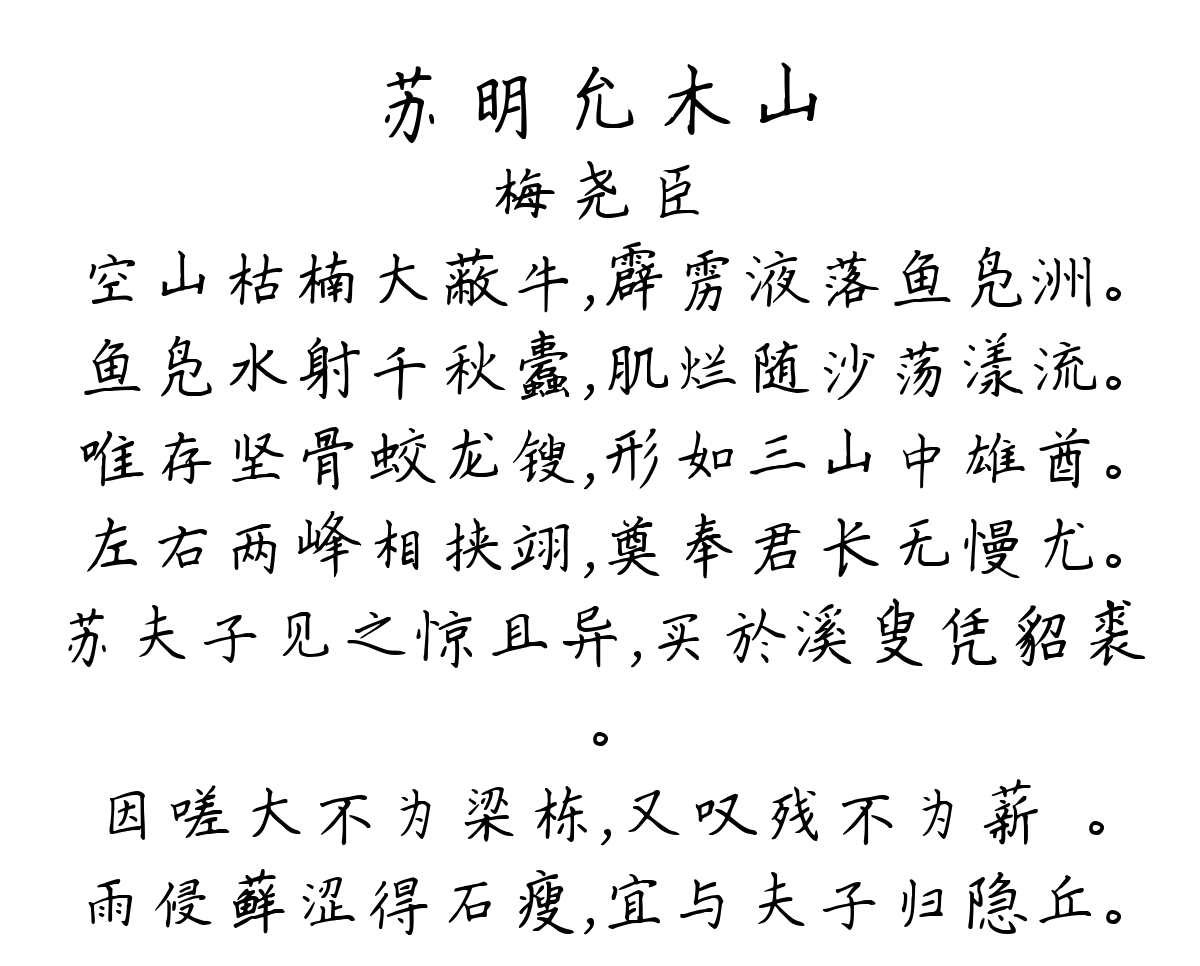 苏明允木山
梅尧臣
空山枯楠大蔽牛,霹雳液落鱼凫洲。
鱼凫水射千秋蠹,肌烂随沙荡漾流。
唯存坚骨蛟龙锼,形如三山中雄酋。
左右两峰相挟翊,奠奉君长无慢尤。
苏夫子见之惊且异,买於溪叟凭貂裘
。
因嗟大不为梁栋,又叹残不为薪 。
雨侵藓涩得石瘦,宜与夫子归隐丘。